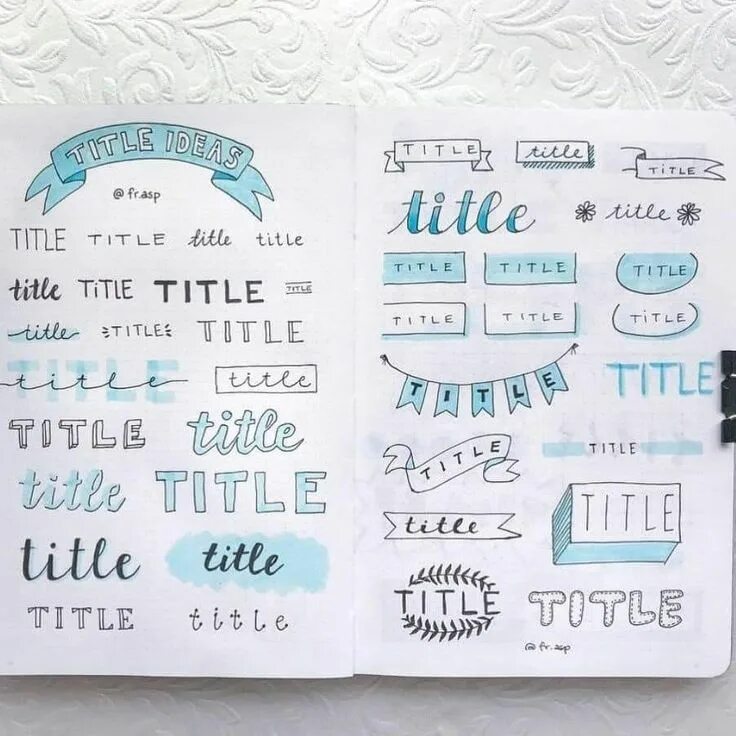 TITLE IDEAS
@fr.asp
TITLE TITLE title title
title TiTLE TITLE TITLE
title TITLE TITLE
title title
TITLE title
title TITLE
title title
TITLE title
TITLE title TITLE
title title
TITLE TITLE TITLE
TITLE TITLE TiTLE
TITLE TITLE
TITLE TITLE
title TITLE
TITLE TITLE
@fr.asp